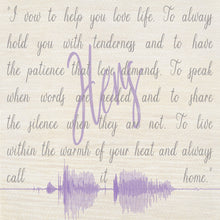 "I vow to help you love life. To always
hold you with tenderness and to have
the patience that love demands. To speak
when words are needed and to share
the silence when they are not. To live
within the warmth of your heat and always
call it home."
Hers